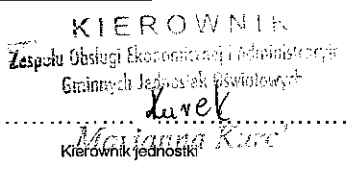 KIEROWNIK
Zespołu Obsługi Ekonomicznej i Administracyjnej
Gminnych Jednostek Oświatowych
Kurek
Marianna Kurek
Kierownik jednostki